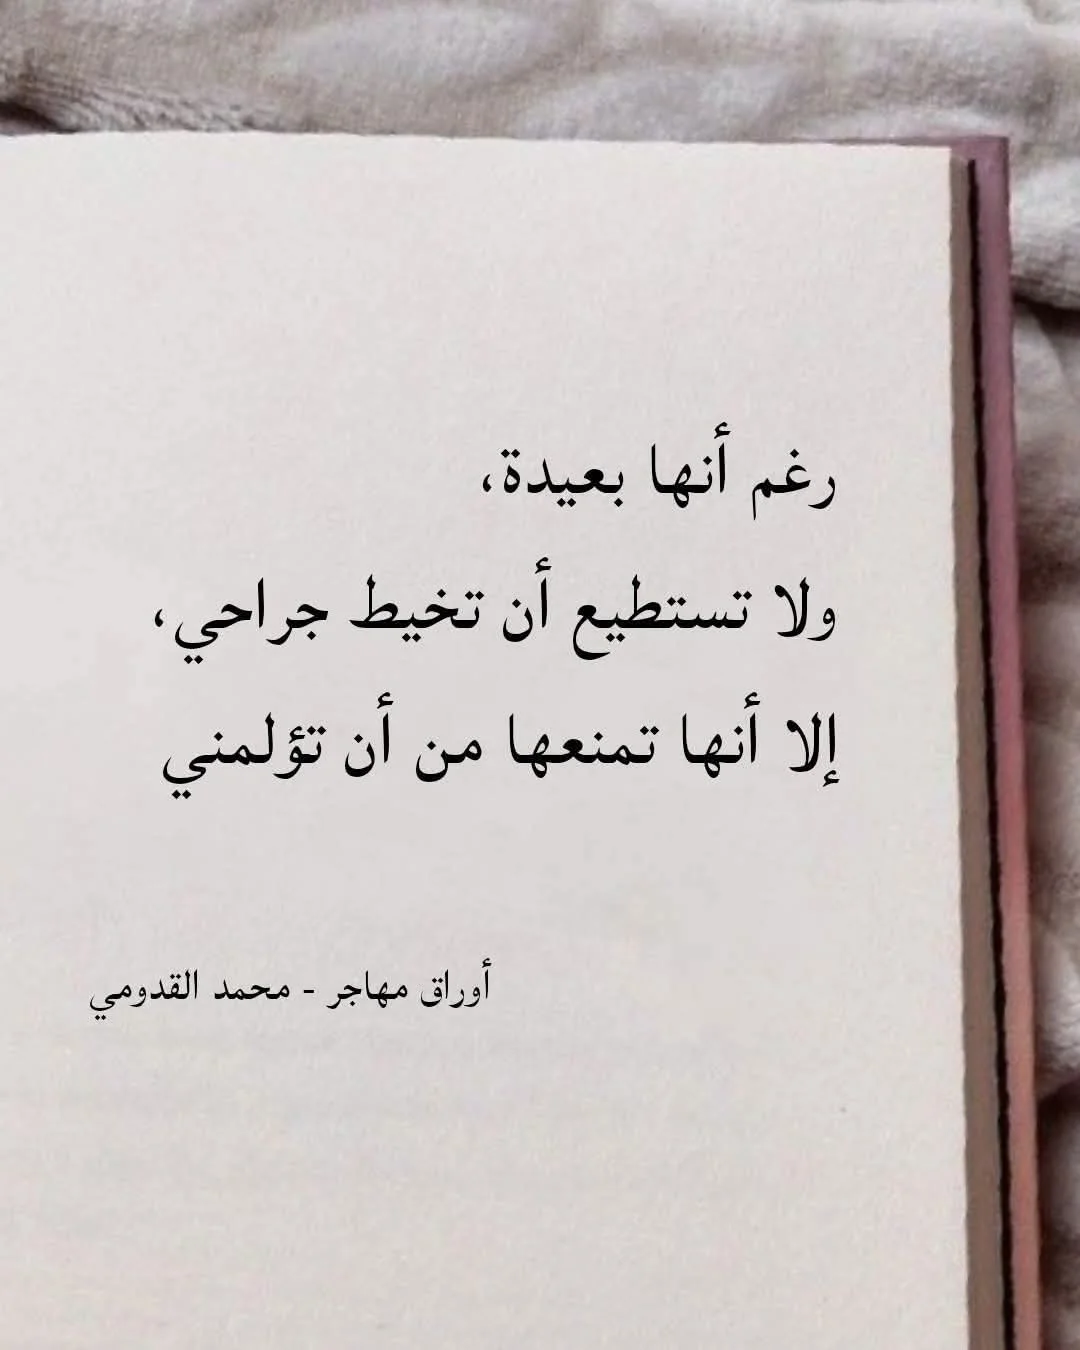 رغم أنها بعيدة،
ولا تستطيع أن تخيط جراحي،
إلا أنها تمنعها من أن تؤلمني
أوراق مهاجر - محمد القدومي